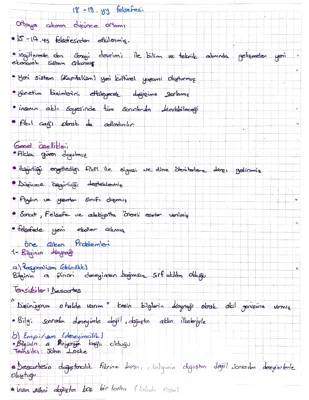 18 - 19. yy felsefesi
Ortaya çıkaran düşünce ortamı
• 15 - 17. yy felsefesinden etkilenmiş.
• İngiltere'den Sanayi devrimi ile bilim ve teknik alanında gelişmeler yeni
ekonomik sistem
• Yeni sistem (Kapitalizm) yeni kültürel yapısını oluşturmuş
• yönetim biçimlerini etkileyecek değişime
• insanın aklı sayesinde tüm sorunlarını
• Akıl çağı olarak da adlandırılır.
Genel özellikleri
• Akla güven duyulmuş
• özgürlüğü engellediği fikri ile siyasi ve dine
• Düşünce özgürlüğü desteklenmiş
• Aydın ve yazarlar sınıfı doğmuş
• Sanat, Felsefe ve edebiyatta önemli eserler verilmiş
• felsefede yeni
öne çıkan Problemleri
1 - Bilginin kaynağı
a) Rasyonalizm (akılcılık)
Bilginin a priori deneyimden bağımsız, sırf akıldan olduğu
Temsilciler: Descartes
" Düşünüyorum o halde varım " kesin bilgilerin kaynağı olarak akıl
• Bilgi sonradan deneyimle değil, doğuştan aklın ilkeleriyle
b) Empirizm (deneyimcilik)
• Bilginin a bağlı olduğu
Temsilci: John Locke
• Descartesin doğuştancılık fikrine karşı, bilginin doğuştan değil sonradan deneyimlerle
oluştuğu
• insan zihni doğuştan boş bir levha